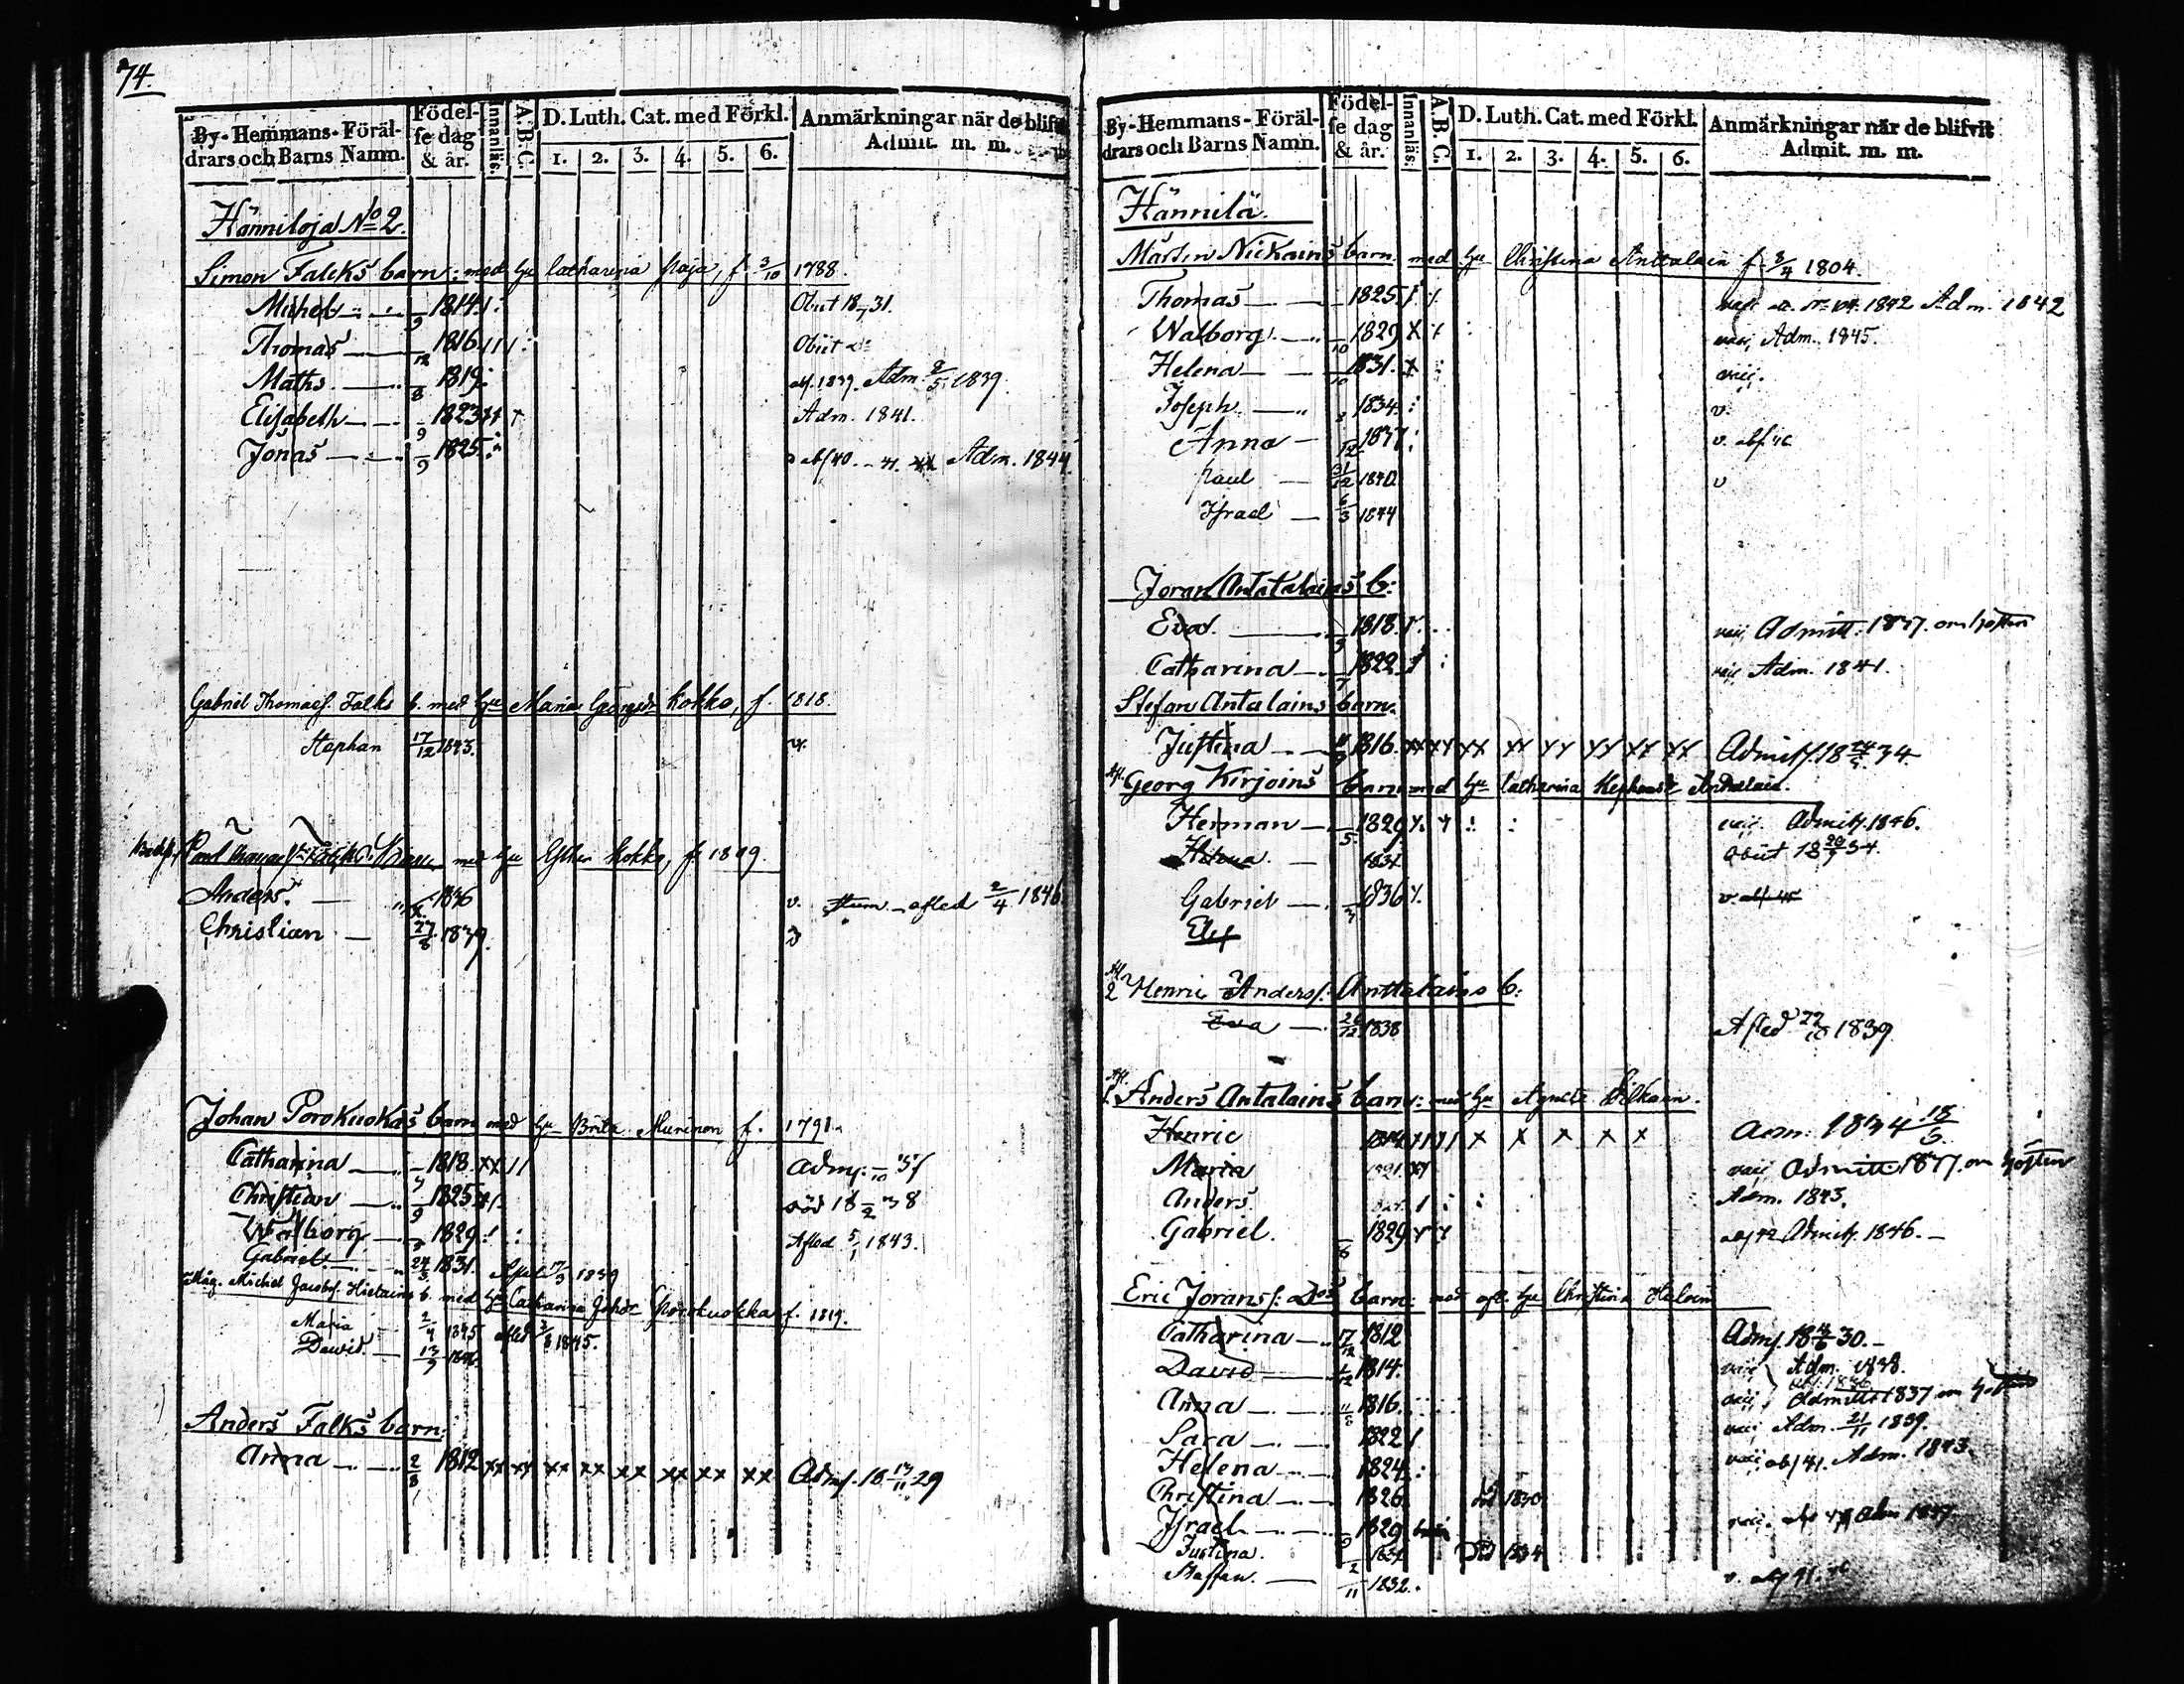 74.
By-Hemmans-Föräldrars och Barns Namn. Födelse dag & år. Innanläs. A.B.C. D. Luth. Cat. med Förkl. 1. 2. 3. 4. 5. 6. Anmärkningar när de blifvit Admit. m. m.
Hänniloja No 2.
Simon Falcks barn: med hu Catharina Paija, f. 3/10 1788.
Michel 9 1814 Obiit 18 31.
Thomas 12 1816 Obiit
Maths 8 1819. abs. 1839. Adm. 1839.
Elisabeth 9 1823 Adm. 1841.
Jonas 9 1825. abs 40. Adm. 1844.
Gabriel Thomass. Falks b. med hu Maria Georgsdr Kokko, f. 1818.
Stephan 17/12 1843. v.
Paul Thomass. med hu Esther Kokko, f. 1809.
Anders. 1836 v. afled 2/4 1846
Christian 27/8 1839. v
Johan Porokuokas barn med hu Brita Murinen f. 1791.
Catharina 7 1818. xx Adms.
Christian 9 1825 död 18 2 38
Walborg 1829 Afled 5/1 1843.
Gabriel 24/3 1831. Afled 17/3 1839
Måg. Michel Jacobs. Hietains b. med hu Catharina Johdr Porokuokka f. 1819.
Maria 2/4 1845 afled 1845.
David. 13/9 1846.
Anders Falks barn:
Anna 2/8 1812 xx xx xx xx xx xx xx xx Adms. 18 13/11 29
By-Hemmans-Föräldrars och Barns Namn. Födelse dag & år. Innanläs. A.B.C. D. Luth. Cat. med Förkl. 1. 2. 3. 4. 5. 6. Anmärkningar när de blifvit Admit. m. m.
Hännilä.
Mårten Nickains barn med hu Christina Anttalain f. 1804.
Thomas 1825 1842 Adm. 1842
Walborg 10 1829 vacc. Adm. 1845.
Helena 10 1831. vacc.
Joseph 1834 v.
Anna 12 1837 v. abs 46
Paul 31/12 1840. v
Israel 6/3 1844
Joran Antalains b:
Eva 9 1818. vacc. Admitt: 1837. om hösten
Catharina 7 1822. vacc. Adm. 1841.
Stefan Antalains barn.
Justina 1816. xx xx xx xx xx xx xx xx Admitt. 18 34
Georg Kirjoins barn med hu Catharina Anttalain.
Herman 5 1829 vacc. Admitt. 1846.
Helena Obiit 18 34.
Gabriel 1836 v. abs. 45
Elis
2 Henric Anders. Anttalains b:
Eva 26/12 1838 Afled 22/10 1839
Anders Antalains barn: med hu Agneta
Henric 1814 x x x x x Adm: 1834 18/5.
Maria vacc. Admitt: 1837. om hösten
Anders. Adm. 1843.
Gabriel. 6 1829 abs 42 Admitt. 1846.
Eric Jorans s: Dos barn: med afl. hu Christina
Catharina 17/12 1812 Adms. 18 30.
David 1814. vacc. Adm. 1838.
Anna 11/8 1816. vacc. abs. 1836 Admitt: 1837 om hösten
Sara 1822 vacc. Adm. 21/11 1839.
Helena 1824. vacc. abs 41. Adm. 1843.
Christina 1826 död 1830.
Israel 9 1829 vacc.
Justina. Död 1834
Staffan. 2/11 1832. v. abs 41.